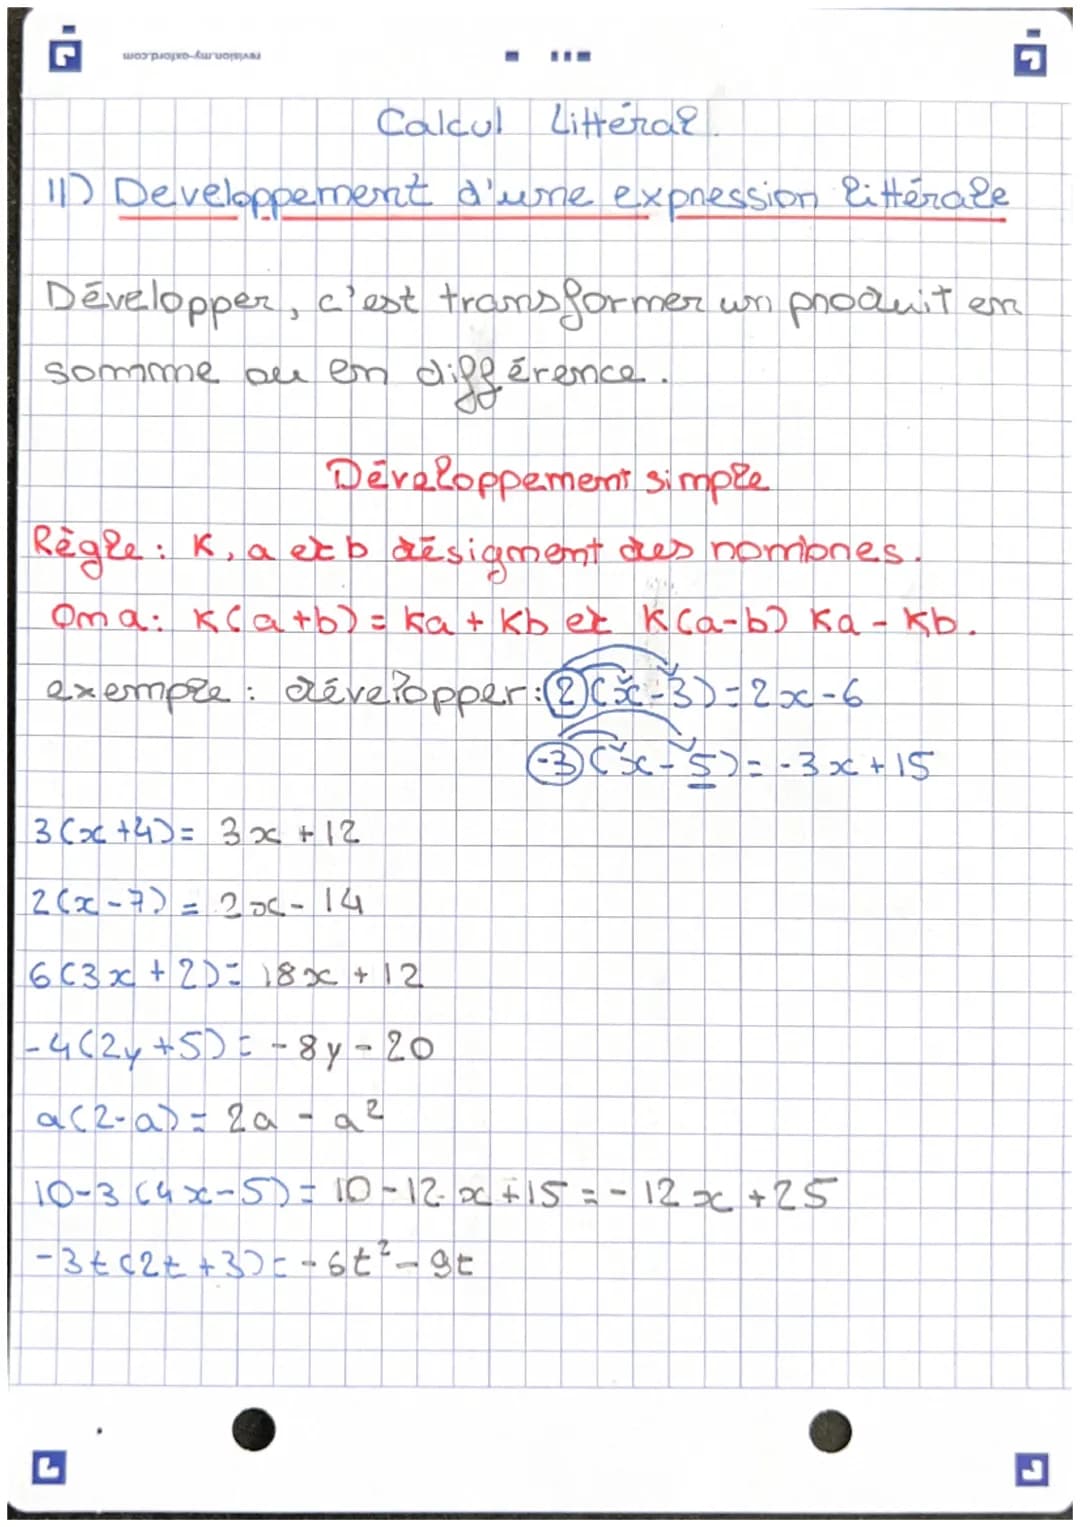 revision.my-oxford.com
Calcul Littéral.
II) Developpement d'une expression littérale
Développer, c'est transformer un produit en
somme ou en différence.
Développement simple
Règle : K, a et b désignent des nombres.
On a : K(a+b) = Ka + Kb et K(a-b) Ka - Kb.
exemple : développer : 2(x-3) = 2x-6
-3(x-5) = -3x+15
3(x+4) = 3x+12
2(x-7) = 2x-14
6(3x+2) = 18x+12
-4(2y+5) = -8y-20
a(2-a) = 2a - a²
10-3(4x-5) = 10-12x+15 = -12x+25
-3t(2t+3) = -6t²-9t